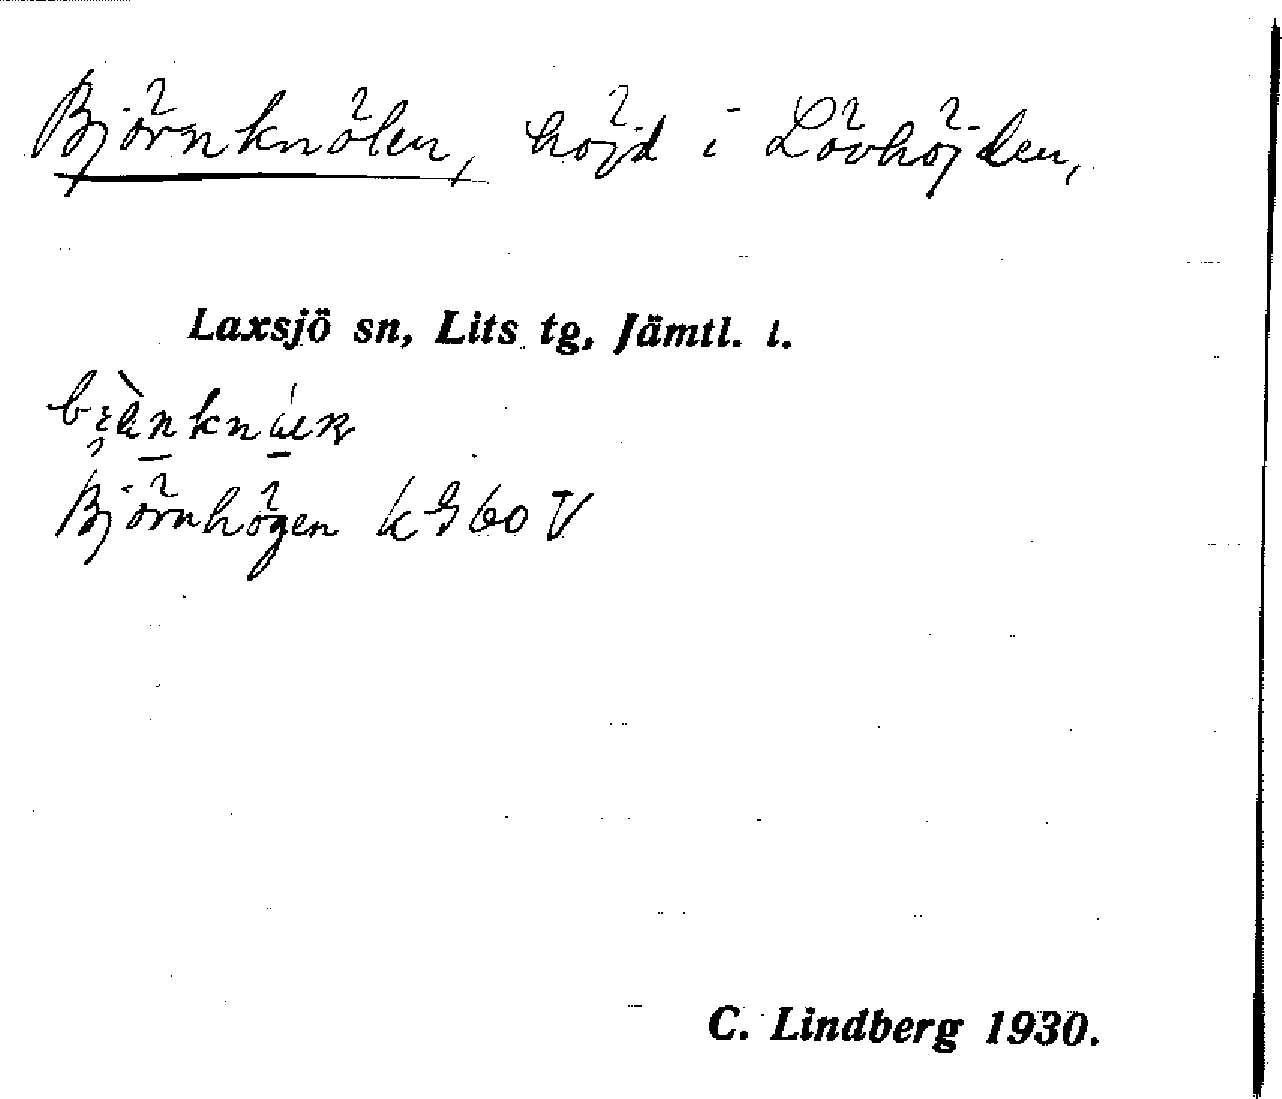 Björnknölen, höjd i Lövhöjden,
Laxsjö sn, Lits tg, Jämtl. l.
Björnhögen k 960 V
C. Lindberg 1930.